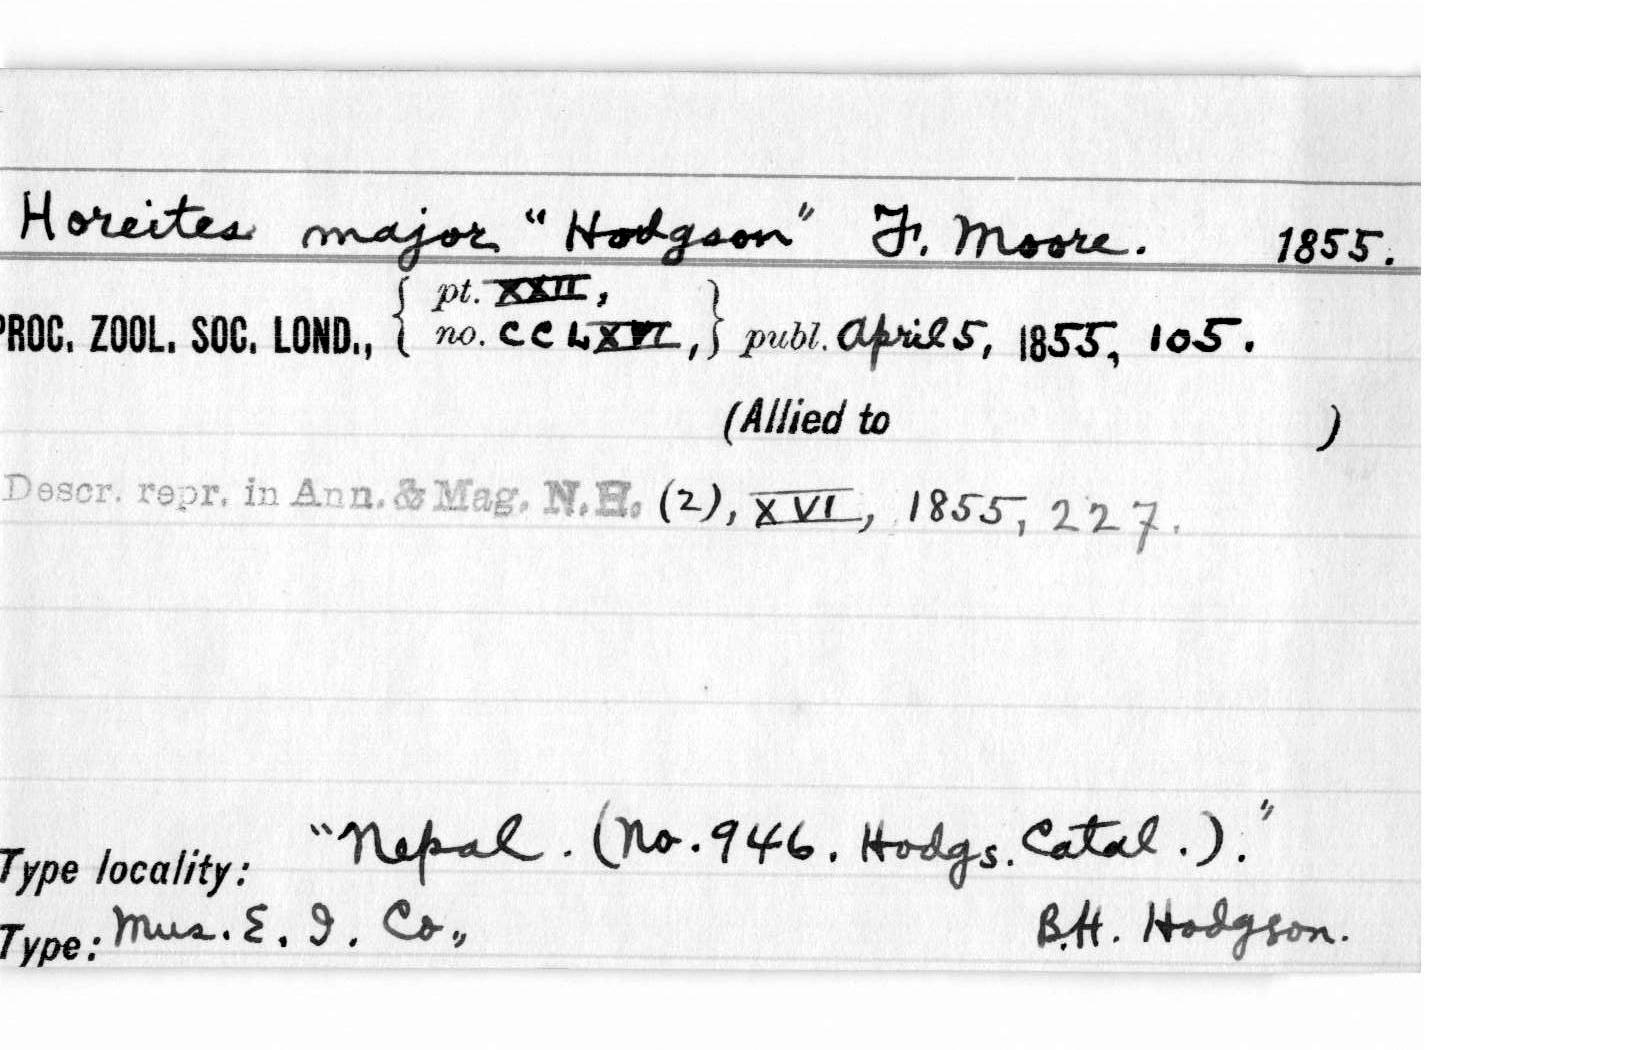 Horeites major "Hodgson" F. Moore. 1855.
pt. XXII,
PROC. ZOOL. SOC. LOND., no. CCLXVI, publ. April 5, 1855, 105.
(Allied to )
Descr. repr. in Ann. & Mag. N.H. (2), XVI, 1855, 227.
Type locality: "Nepal. (No. 946. Hodgs. Catal.)."
Type: Mus. E. I. Co., B.H. Hodgson.